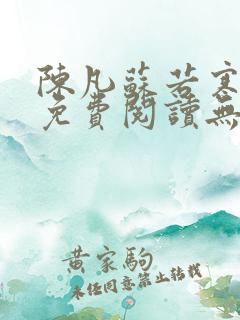 陳凡蘇若寒
免費閱讀無
黃家駒
未經同意禁止轉載